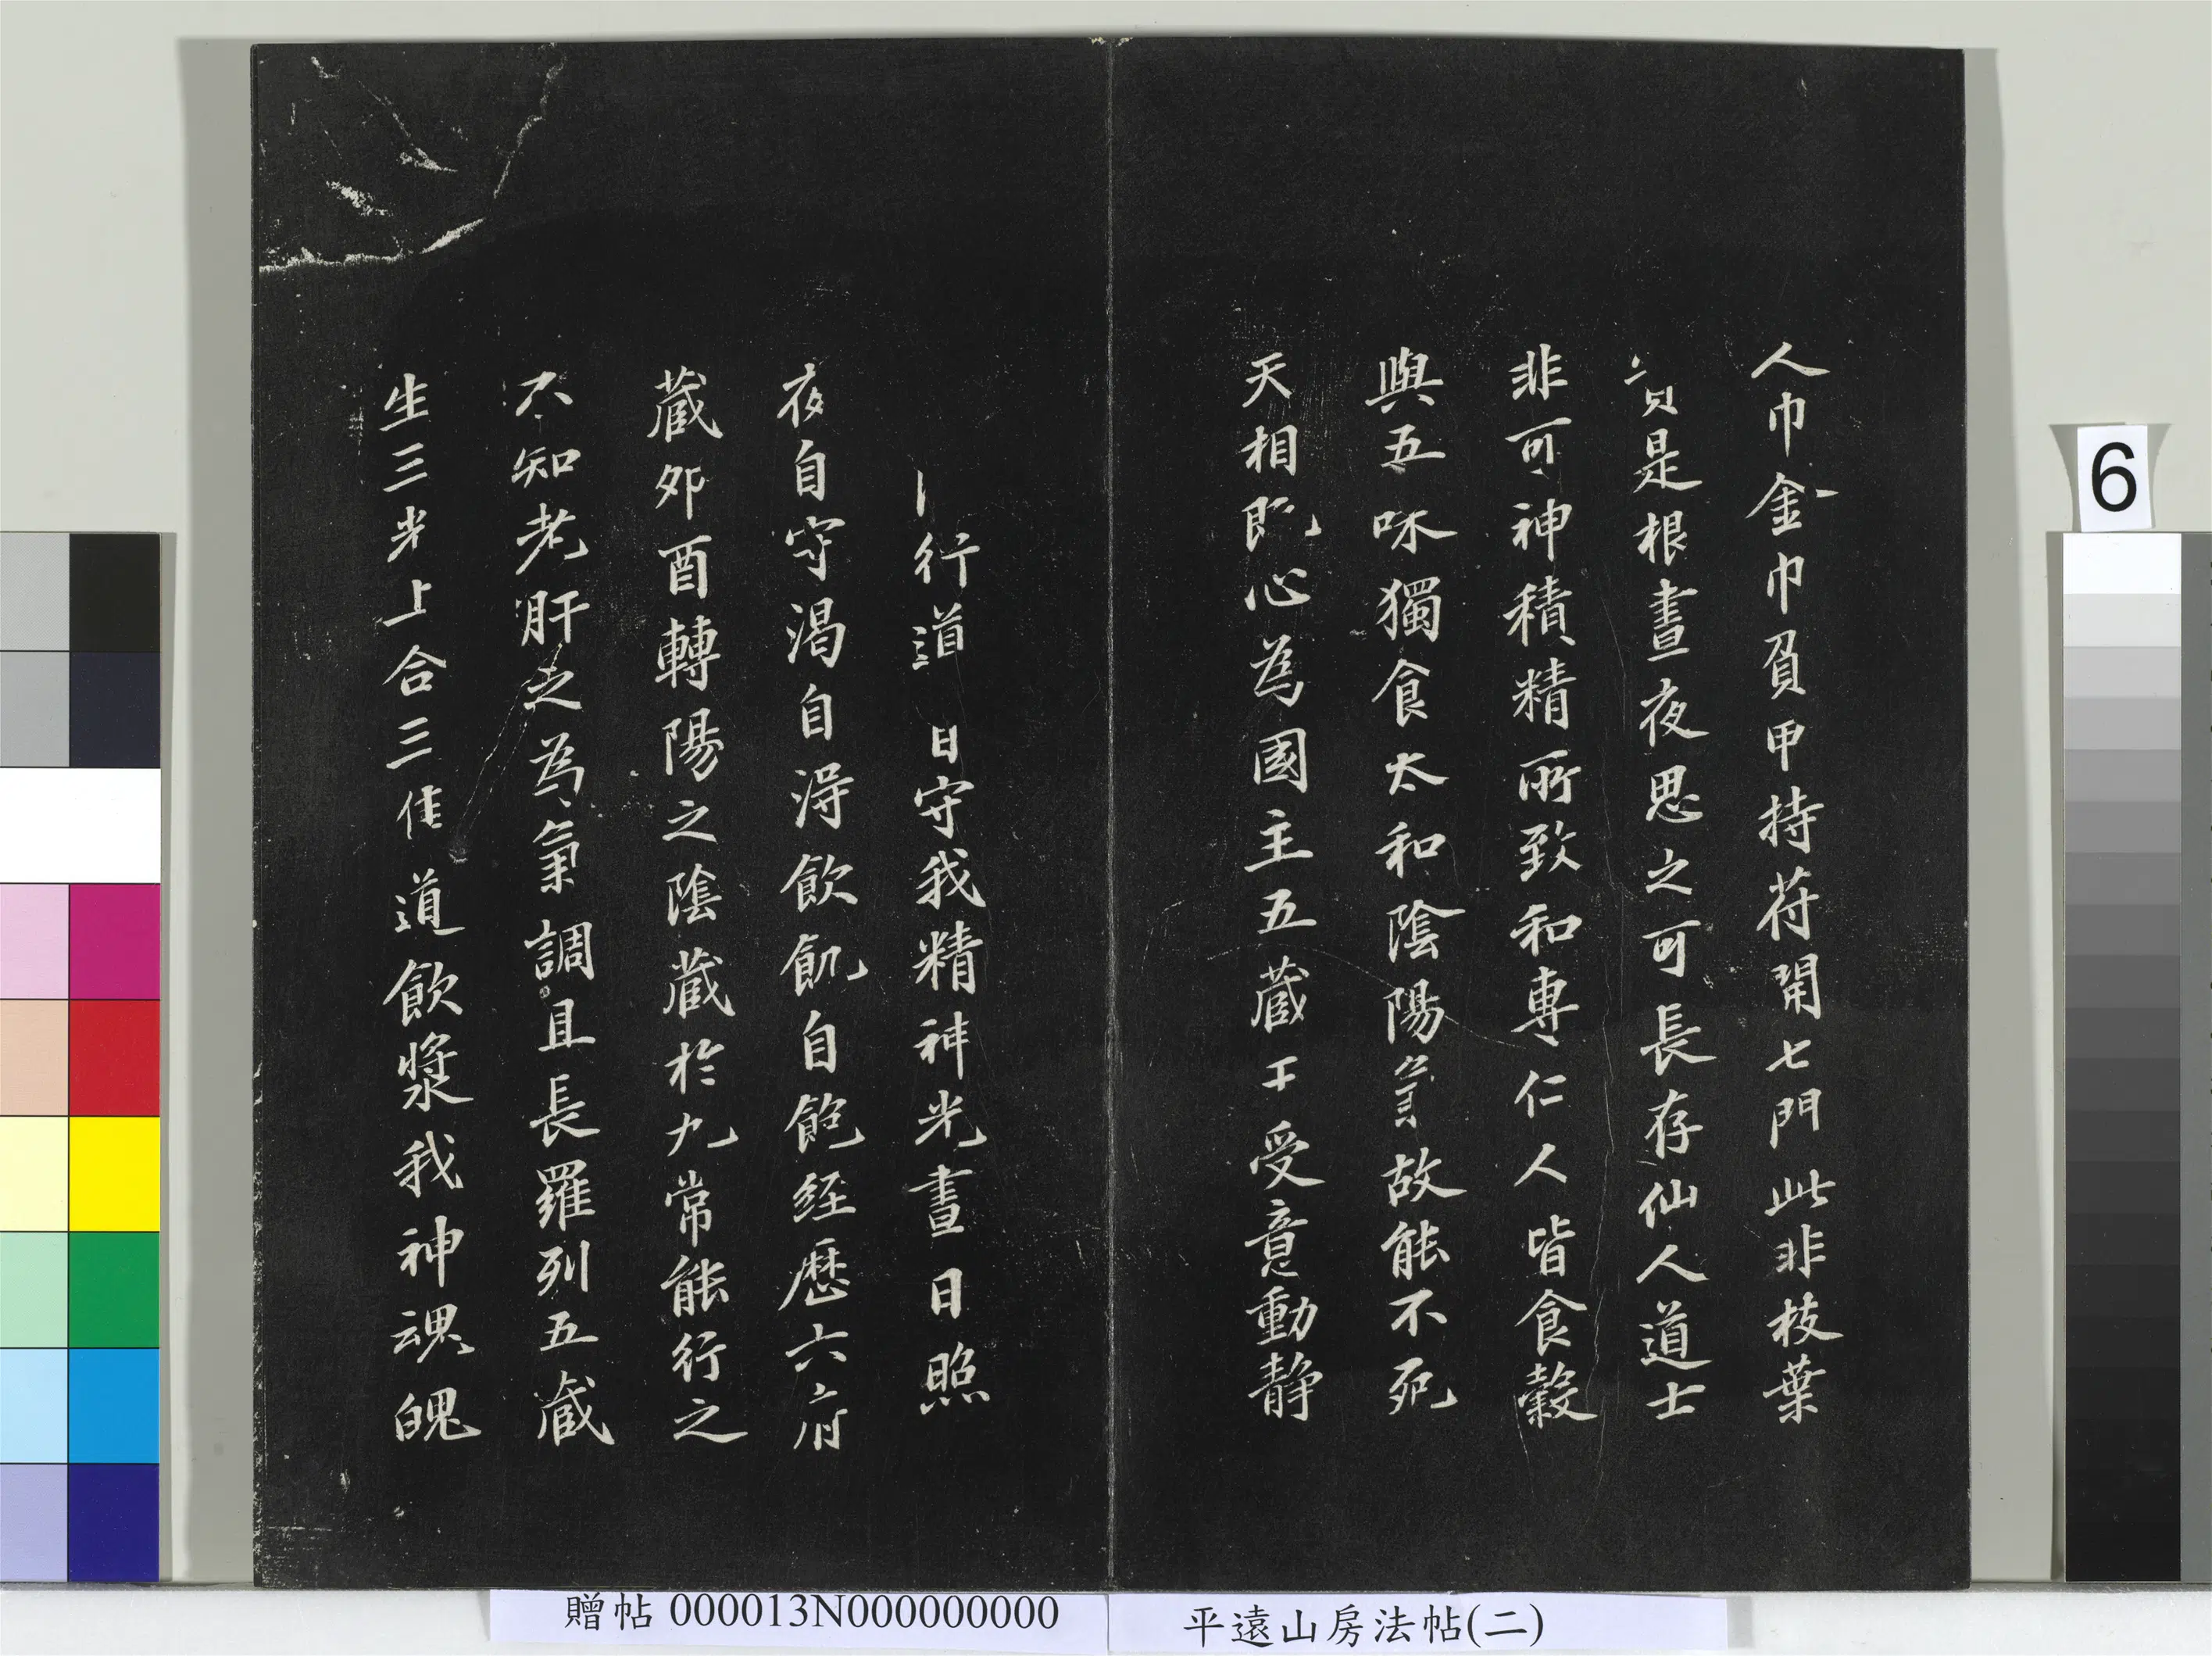 人巾金巾負甲持苻開七門此非枝葉
是根晝夜思之可長存仙人道士
非可神積精所致和專仁人皆食穀
與五味獨食太和陰陽氣故能不死
天相既心為國主五藏王受意動靜
行道日守我精神光晝日照
夜自守渴自淂飲飢自飽經歷六府
藏卯酉轉陽之陰藏於九常能行之
不知老肝之為氣調且長羅列五藏
生三光上合三隹道飲漿我神魂魄
6
贈帖 000013N000000000
平遠山房法帖(二)